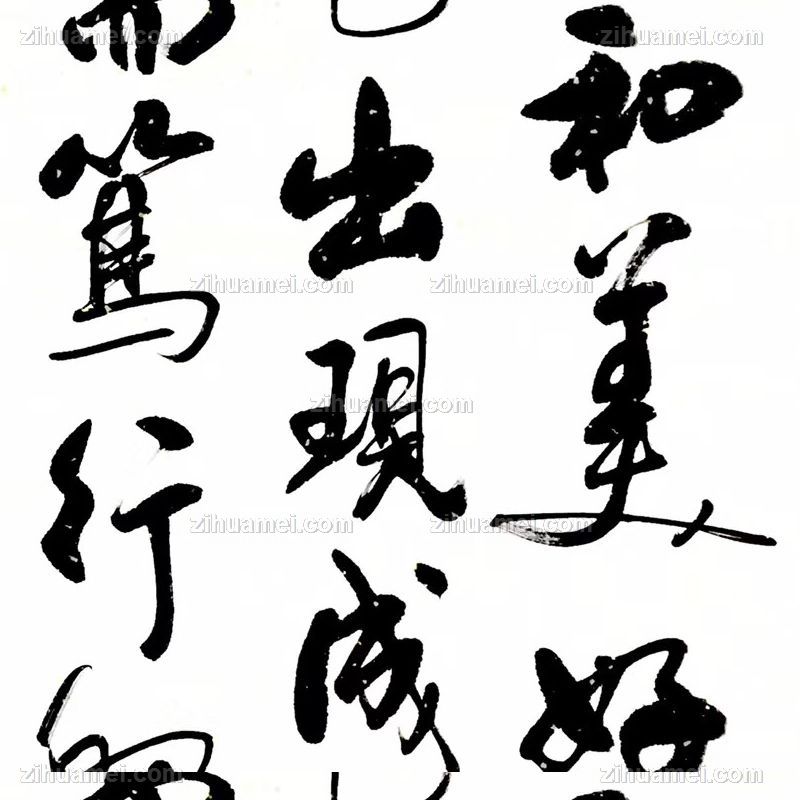 和美好
出現成
篤行
zihuamei.com
zihuamei.com
zihuamei.com
zihuamei.com
zihuamei.com
zihuamei.com
zihuamei.com
zihuamei.com
zihuamei.com
zihuamei.com
zihuamei.com